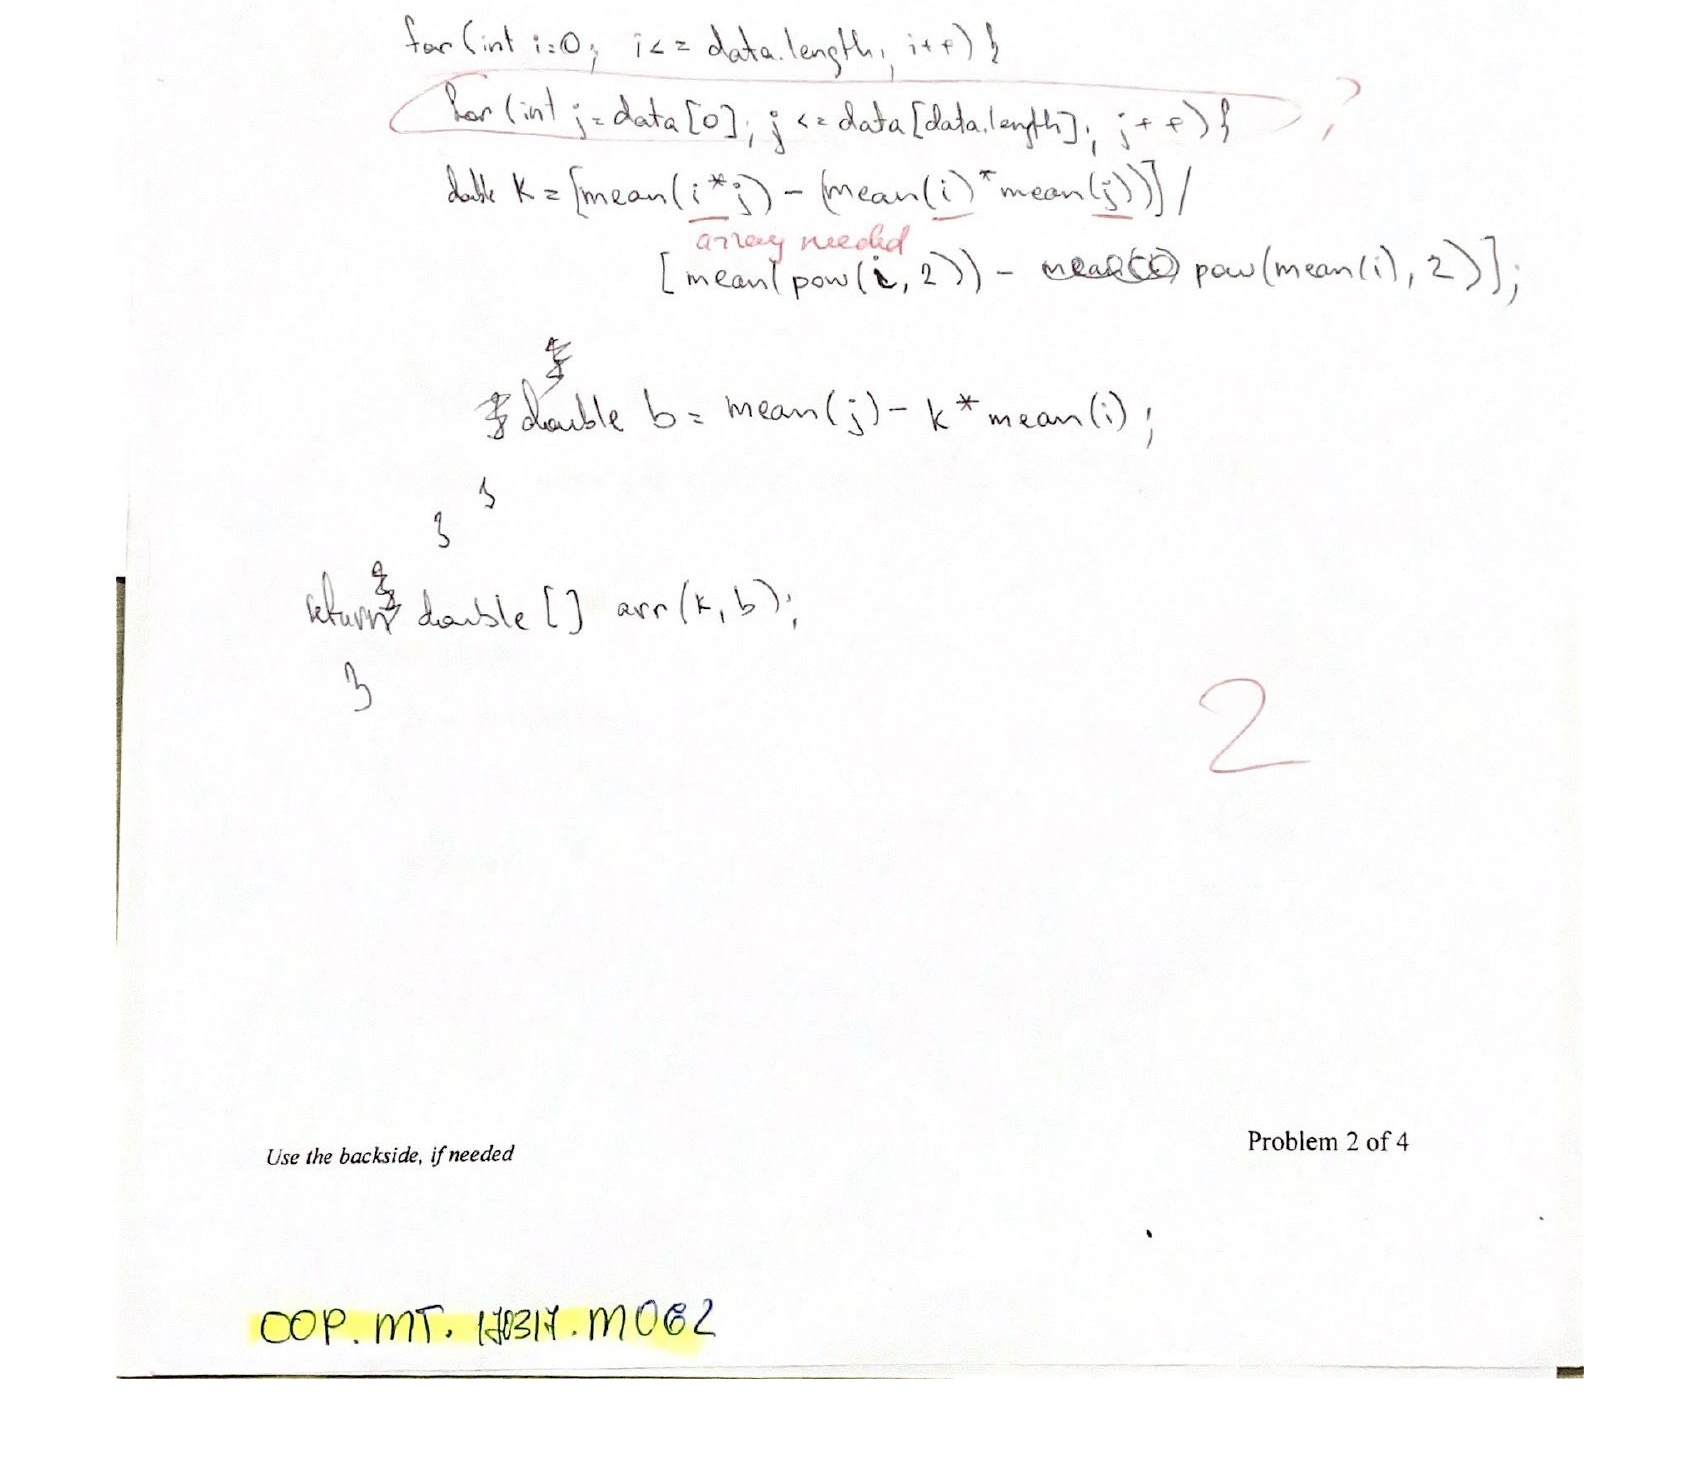 for (int i=0; i<= data.length; i++) {
for (int j=data[0]; j <= data[data.length]; j++) {
?
double k = [mean(i*j) - (mean(i)*mean(j))] /
array needed
[mean(pow(i, 2)) - pow(mean(i), 2)];
double b = mean(j) - k * mean(i);
}
}
return double [] arr(k, b);
}
2
Use the backside, if needed
Problem 2 of 4
OOP. MT. 170317. M062